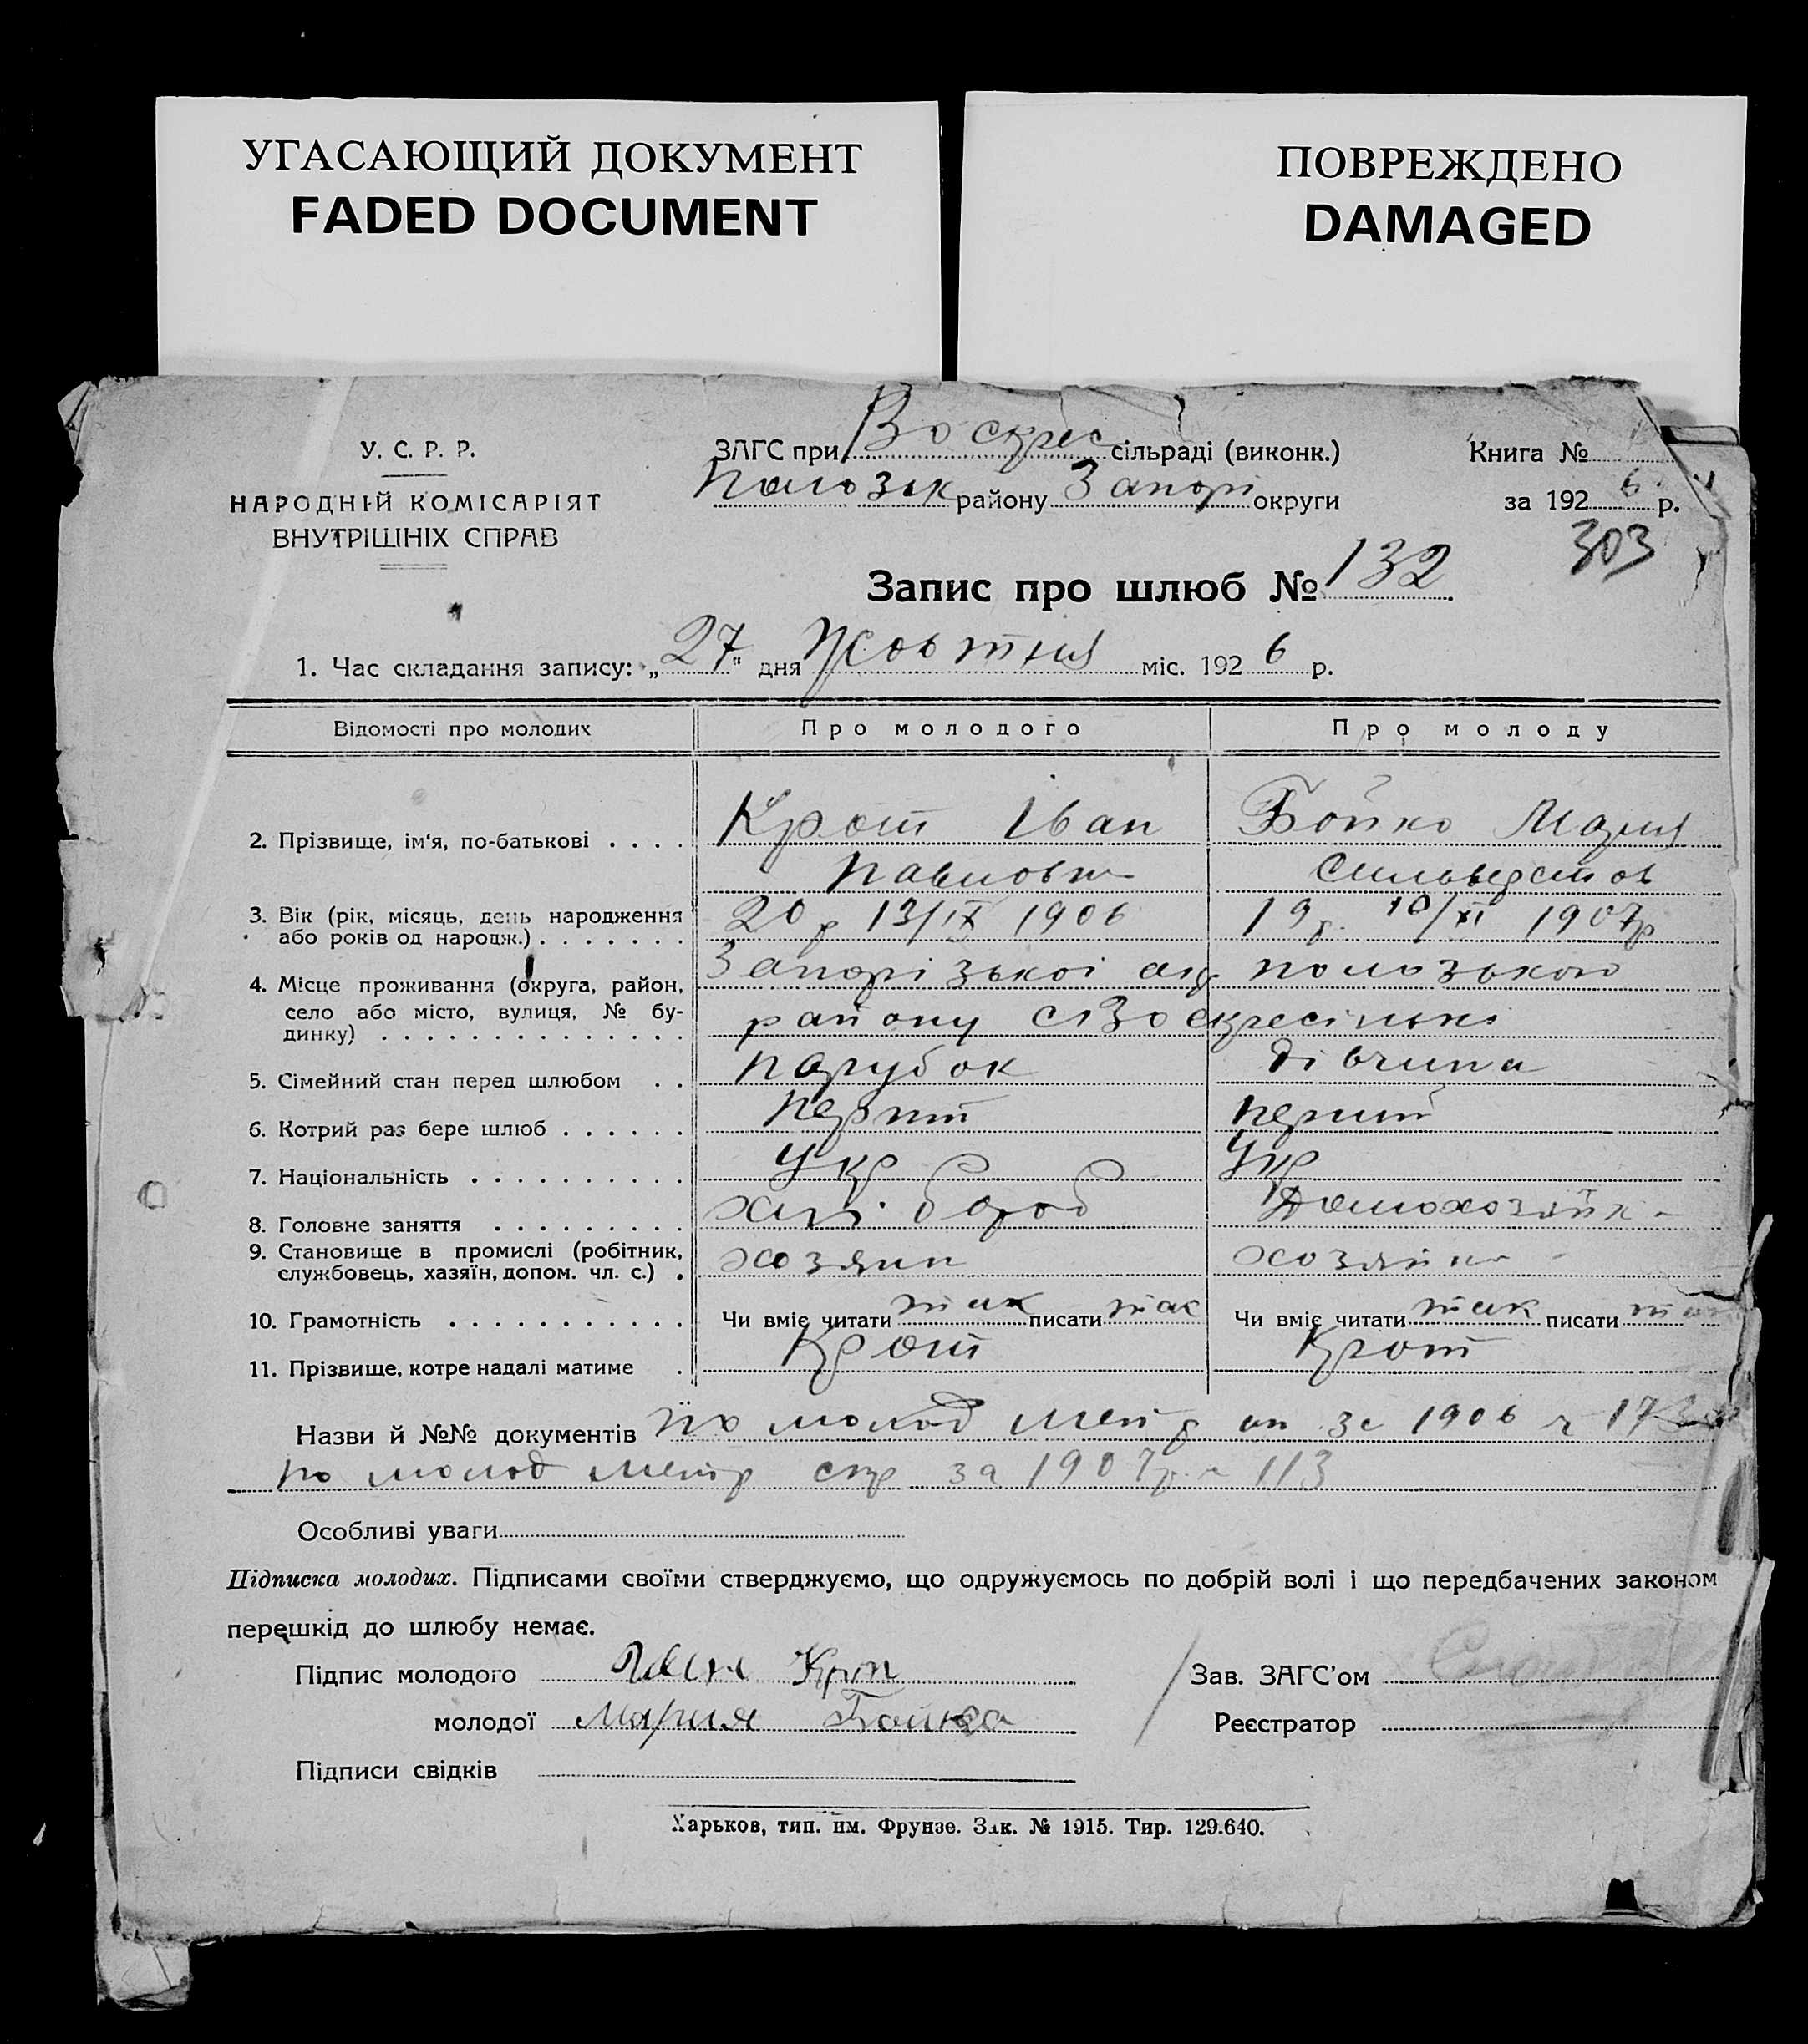 УГАСАЮЩИЙ ДОКУМЕНТ
FADED DOCUMENT
ПОВРЕЖДЕНО
DAMAGED
У. С. Р. Р.
НАРОДНІЙ КОМІСАРІЯТ
ВНУТРІШНІХ СПРАВ
ЗАГС при Воскрес сільраді (виконк.)
Полозьк району Запорі округи
Книга №
за 1926 р.
303
Запис про шлюб № 132
1. Час складання запису: „27" дня Жовтня міс. 1926 р.
Відомості про молодих Про молодого Про молоду
2. Прізвище, ім'я, по-батькові . . . . Крот Іван Бойко Мария
Павлович Сильверстов
3. Вік (рік, місяць, день народження 20 р 13/IX 1906 19 р. 10/XI 1907р
або років од народж.) . . . . . . .
4. Місце проживання (округа, район, Запорізькоі окр Полозького
село або місто, вулиця, № бу- району с Воскресінькі
динку) . . . . . . . . . . . . . .
5. Сімейний стан перед шлюбом . . парубок дівчина
6. Котрий раз бере шлюб . . . . . . перший перший
7. Національність . . . . . . . . . . Укр Укр
8. Головне заняття . . . . . . . . . хлібороб Домохозяйк
9. Становище в промислі (робітник, хозяин хозяйн
службовець, хазяїн, допом. чл. с.) .
10. Грамотність . . . . . . . . . . . Чи вміє читати так писати так Чи вміє читати так писати так
11. Прізвище, котре надалі матиме . Крот Крот
Назви й №№ документів по молод метр за 1906
по молод метр стр за 1907р. 113
Особливі уваги
Підписка молодих. Підписами своїми стверджуємо, що одружуємось по добрій волі і що передбачених законом
перешкід до шлюбу немає.
Підпис молодого Иван Крот
Зав. ЗАГС'ом
молодої Мария Бойко
Реєстратор
Підписи свідків
Харьков, тип. им. Фрунзе. Зак. № 1915. Тир. 129.640.